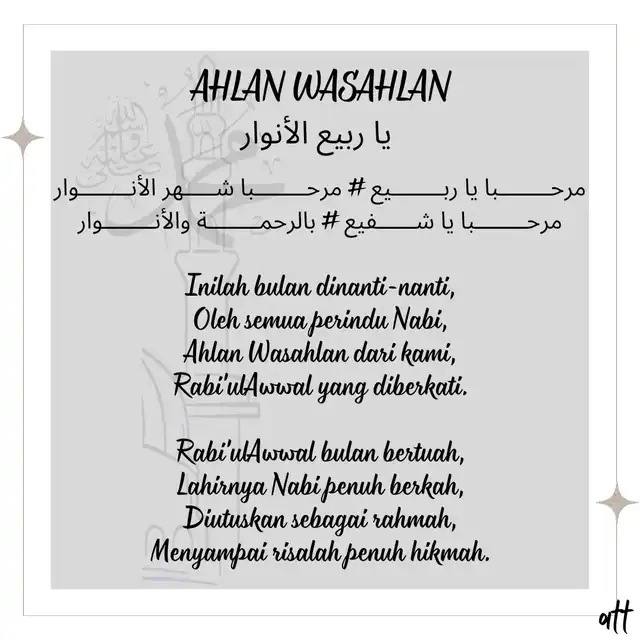 AHLAN WASAHLAN
يا ربيع الأنوار
مرحـــــبا يا ربـــــيع # مرحـــــبا شـــهر الأنـــــوار
مرحـــــبا يا شـــــفيع # بالرحمـــــة والأنـــــوار
Inilah bulan dinanti-nanti,
Oleh semua perindu Nabi,
Ahlan Wasahlan dari kami,
Rabi'ulAwwal yang diberkati.
Rabi'ulAwwal bulan bertuah,
Lahirnya Nabi penuh berkah,
Diutuskan sebagai rahmah,
Menyampai risalah penuh hikmah.
att